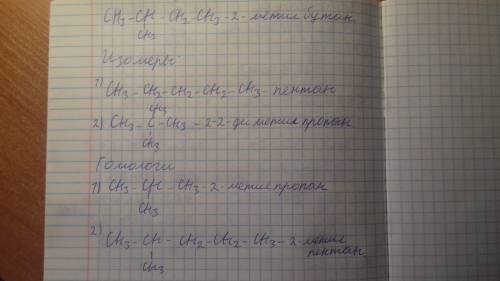 CH₃ - CH - CH₂ - CH₃ - 2 - метил бутан
CH₃
Изомеры:
1) CH₃ - CH₂ - CH₂ - CH₂ - CH₃ - пентан
CH₃
2) CH₃ - C - CH₃ - 2-2- ди метил пропан
CH₃
Гомологи
1) CH₃ - CH - CH₃ - 2 - метил пропан
CH₃
2)
CH₃ - CH - CH₂ - CH₂ - CH₃ - 2 - метил
пентан
CH₃